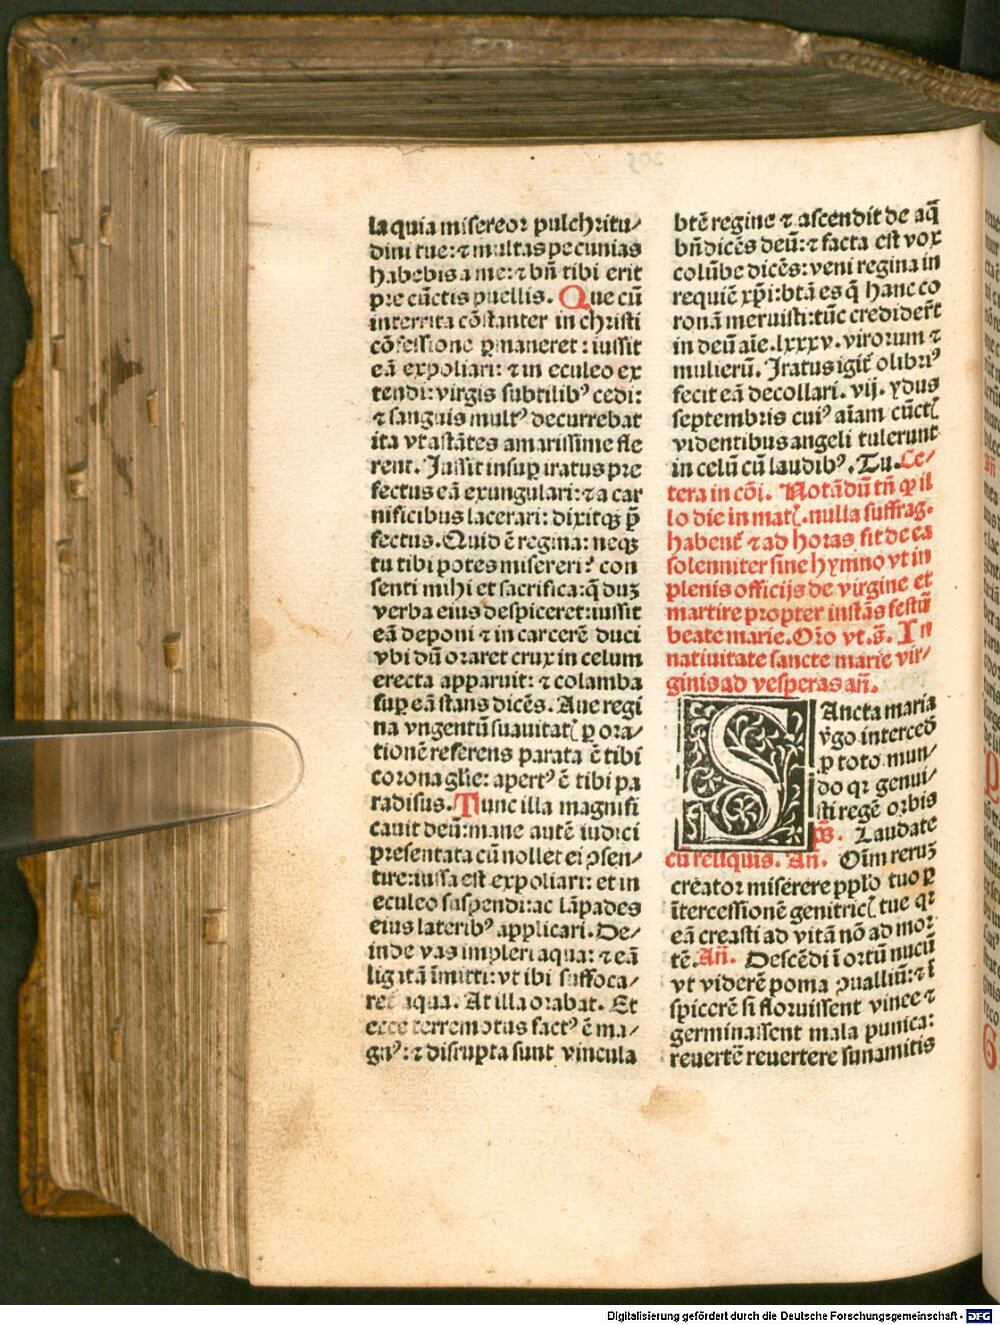 la quia misereor pulchritu/
dini tue: ⁊ multas pecunias
habebis a me: ⁊ bñ tibi erit
pre cūctis puellis. Que cū
interrita cōstanter in christi
cōfessione ꝑmaneret : iussit
eā expoliari: ⁊ in eculeo ex
tendi: virgis subtilibꝰ cedi:
⁊ sanguis multꝰ decurrebat
ita vt astātes amarissime fle
rent. Jussit insuꝑ iratus pre
fectus eā exungulari: ⁊ a car
nificibus lacerari: dixitqꝫ p̄
fectus. Quid ē regina: neqꝫ
tu tibi potes misereri? con
senti mihi et sacrifica: q̄ duꝫ
verba eius despiceret: iussit
eā deponi ⁊ in carcerē duci
vbi dū oraret crux in celum
erecta apparuit: ⁊ columba
suꝑ eā stans dicēs. Aue regi
na vngentū suauitatꝭ ꝑ ora/
tionē referens parata ē tibi
corona glīe: apertꝰ ē tibi pa
radisus. Tunc illa magnifi
cauit deū: mane autē iudici
presentata cū nollet ei ꝯsen/
tire: iussa est expoliari: et in
eculeo suspendi: ac lāpades
eius lateribꝰ applicari. De/
inde vas impleri aqua: ⁊ eā
ligatā īmitti: vt ibi suffoca/
ret aqua. At illa orabat. Et
ecce terremotus factꝰ ē ma/
gnꝰ: ⁊ disrupta sunt vincula
btē regine ⁊ ascendit de aq̄
bñdicēs deū: ⁊ facta est vox
colūbe dicēs: veni regina in
requiē xp̄i: btā es q̄ hanc co
ronā meruisti: tūc crediderūt
in deū aīe .lxxxv. virorum ⁊
mulierū. Jratus igit̄ olibriꝰ
fecit eā decollari. vij. ydus
septembris cuiꝰ aīam cūctꝭ
videntibus angeli tulerunt
in celū cū laudibꝰ. Tu. Ce/
tera in cōi. Notādū tñ ꝙ il
lo die in matꝭ. nulla suffrag.
habent̄ ⁊ ad horas fit de ea
solenniter sine hymno vt in
plenis officijs de virgine et
martire propter instās festū
beate marie. Orō vt. s̄. In
natiuitate sancte marie vir/
ginis ad vesperas añ.
SAncta maria
v̄go interced
ꝑ toto mun/
do qꝛ genui/
sti regē orbis
ps̄. Laudate
cū reliquis. Añ. Oīm reruꝫ
creator miserere pplo tuo ꝑ
ītercessionē genitricꝭ tue qꝛ
eā creasti ad vitā nō ad mor
tē. Añ. Descēdi ī ortū nucū
vt viderē poma ꝯualliū: ⁊ ī
spicerē si floruissent vinee ⁊
germinassent mala punica:
reuertē reuertere sunamitis
Digitalisierung gefördert durch die Deutsche Forschungsgemeinschaft - DFG